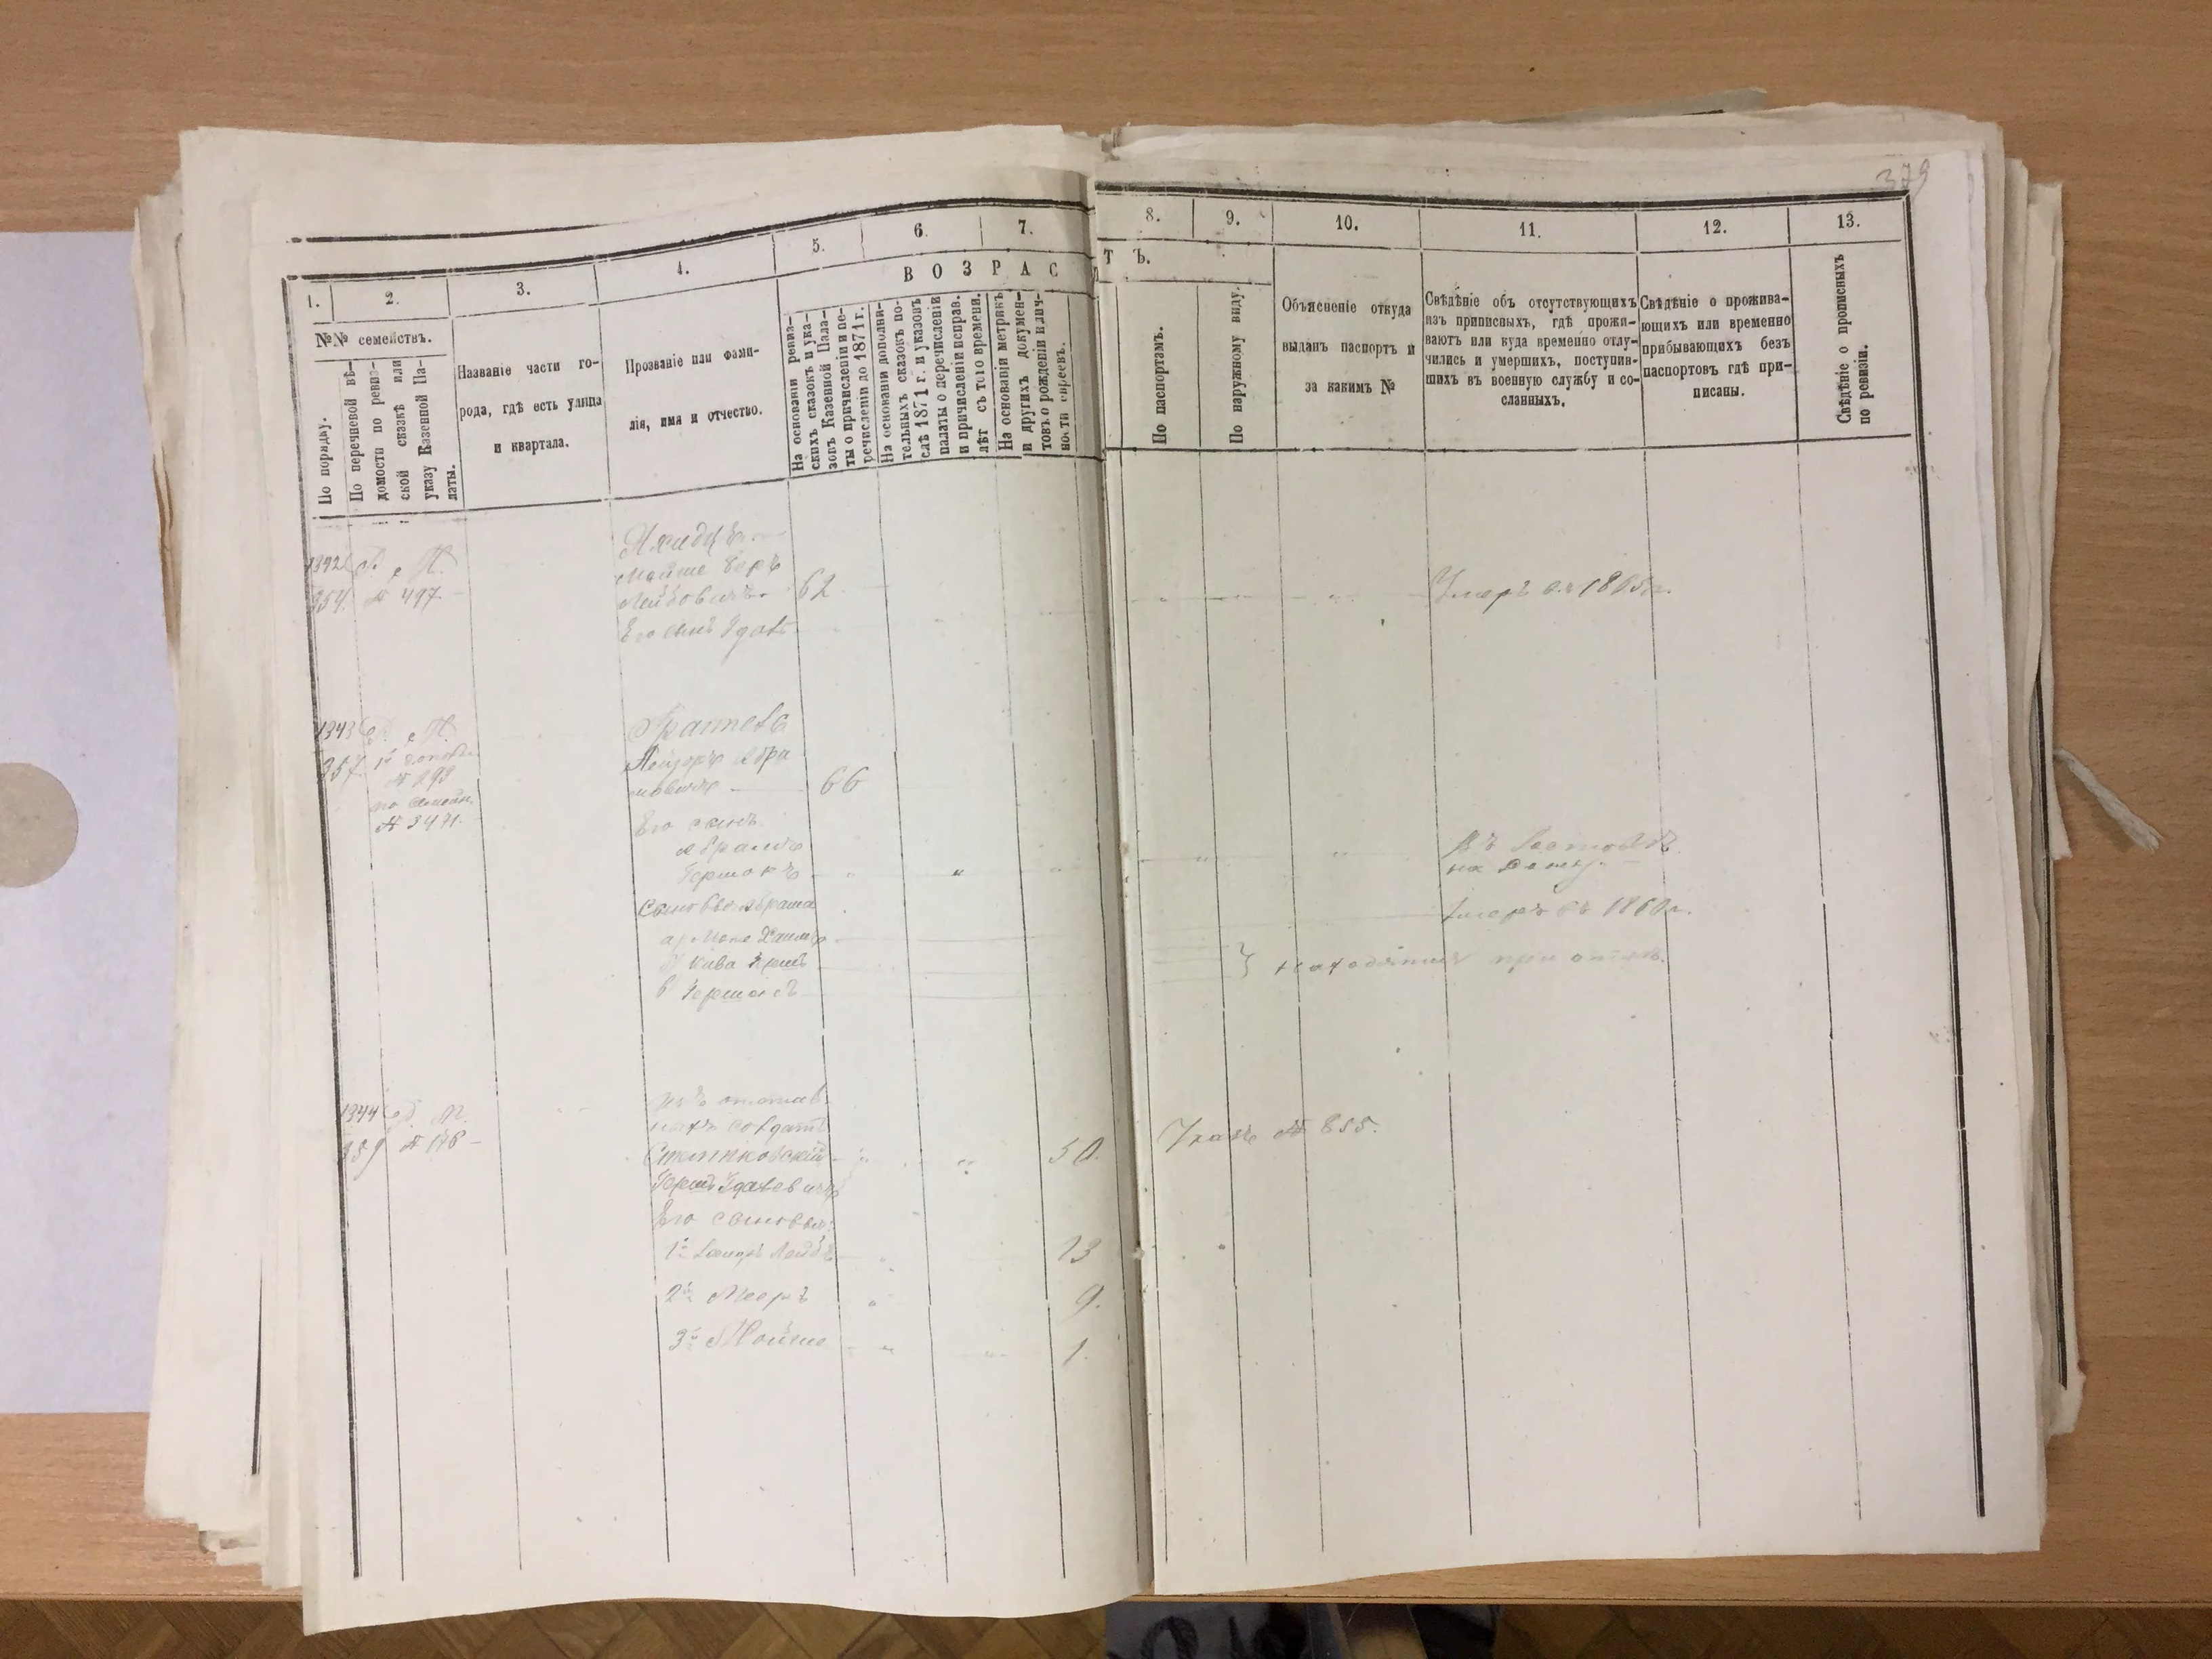 379
1.
2.
3.
4.
5.
6.
7.
8.
9.
10.
11.
12.
13.
№№ семействъ.
По порядку.
По перечневой вѣ-
домости по ревиз-
ской сказкѣ или
указу Казенной Па-
латы.
Названіе части го-
рода, гдѣ есть улица
и квартала.
Прозваніе или фами-
лія, имя и отчество.
ВОЗРАС
ТЪ.
На основаніи ревиз-
скихъ сказокъ и ука-
зовъ Казенной Пала-
ты о причисленіи и пе-
речисленіи до 1871 г.
На основаніи дополни-
тельныхъ сказокъ по-
слѣ 1871 г. и указовъ
палаты о перечисленіи
и причисленіи исправ.
лѣт съ того времени.
На основаніи метрикъ
и других докумен-
товъ о рожденіи и лич-
ности евреевъ.
По паспортамъ.
По наружному виду.
Объясненіе откуда
выданъ паспортъ и
за какимъ №
Свѣдѣніе объ отсутствующихъ
изъ приписныхъ, гдѣ прожи-
ваютъ или куда временно отлу-
чились и умершихъ, поступив-
шихъ въ военную службу и со-
сланныхъ.
Свѣдѣніе о прожива-
ющихъ или временно
прибывающихъ безъ
паспортовъ гдѣ при-
писаны.
Свѣдѣніе о прописныхъ
по ревизіи.
1342
№ 497
Мойше Беръ
Лейбовичъ 62
Умеръ въ 1865 г.
Его сынъ
1343
357
№ 293
№ 3471.
Лейзоръ Абра
мовичъ 66
Его сынъ
Абрамъ
Гершокъ
Въ Ростовѣ
на Дону.
Сыновья Абрама
Умеръ въ 1860 г.
а) Хаимъ
Кива Гершъ
в Гершокъ
находятся при отцѣ.
1344
359 № 176
изъ отстав-
ныхъ солдатъ
50
Указъ № 855.
Гершъ
Его сыновья:
1й Лейбъ 13
2й Мееръ 9.
3й Мойше 1.